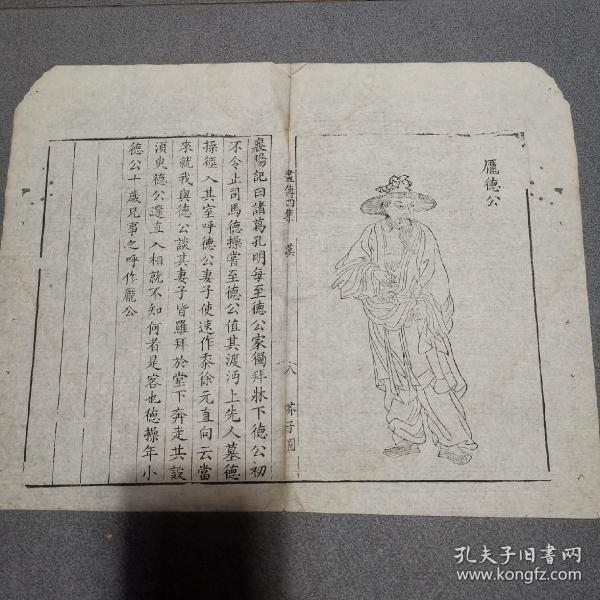 龐德公
畫傳四集
漢
八
芥子園
襄陽記曰諸葛孔明每至德公家獨拜牀下德公初
不令止司馬德操嘗至德公值其渡沔上先人墓德
操徑入其室呼德公妻子使速作黍徐元直向云當
來就我與德公談其妻子皆羅拜於堂下奔走共設
須臾德公還直入相就不知何者是客也德操年小
德公十歲兄事之呼作龐公
孔夫子旧书网
www.kongfz.com